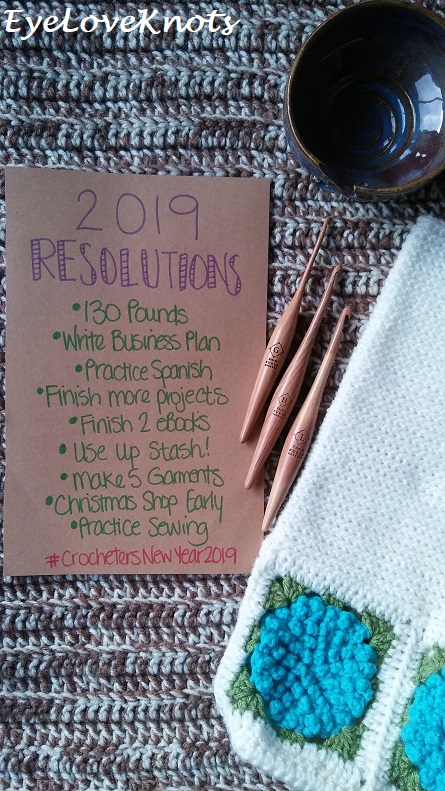 EyeLoveKnots
2019
RESOLUTIONS
•130 Pounds
•Write Business Plan
•Practice Spanish
•Finish more projects
•Finish 2 eBooks
•Use Up Stash!
•make 5 Garments
•Christmas Shop Early
•Practice Sewing
#CrochetersNewYear2019